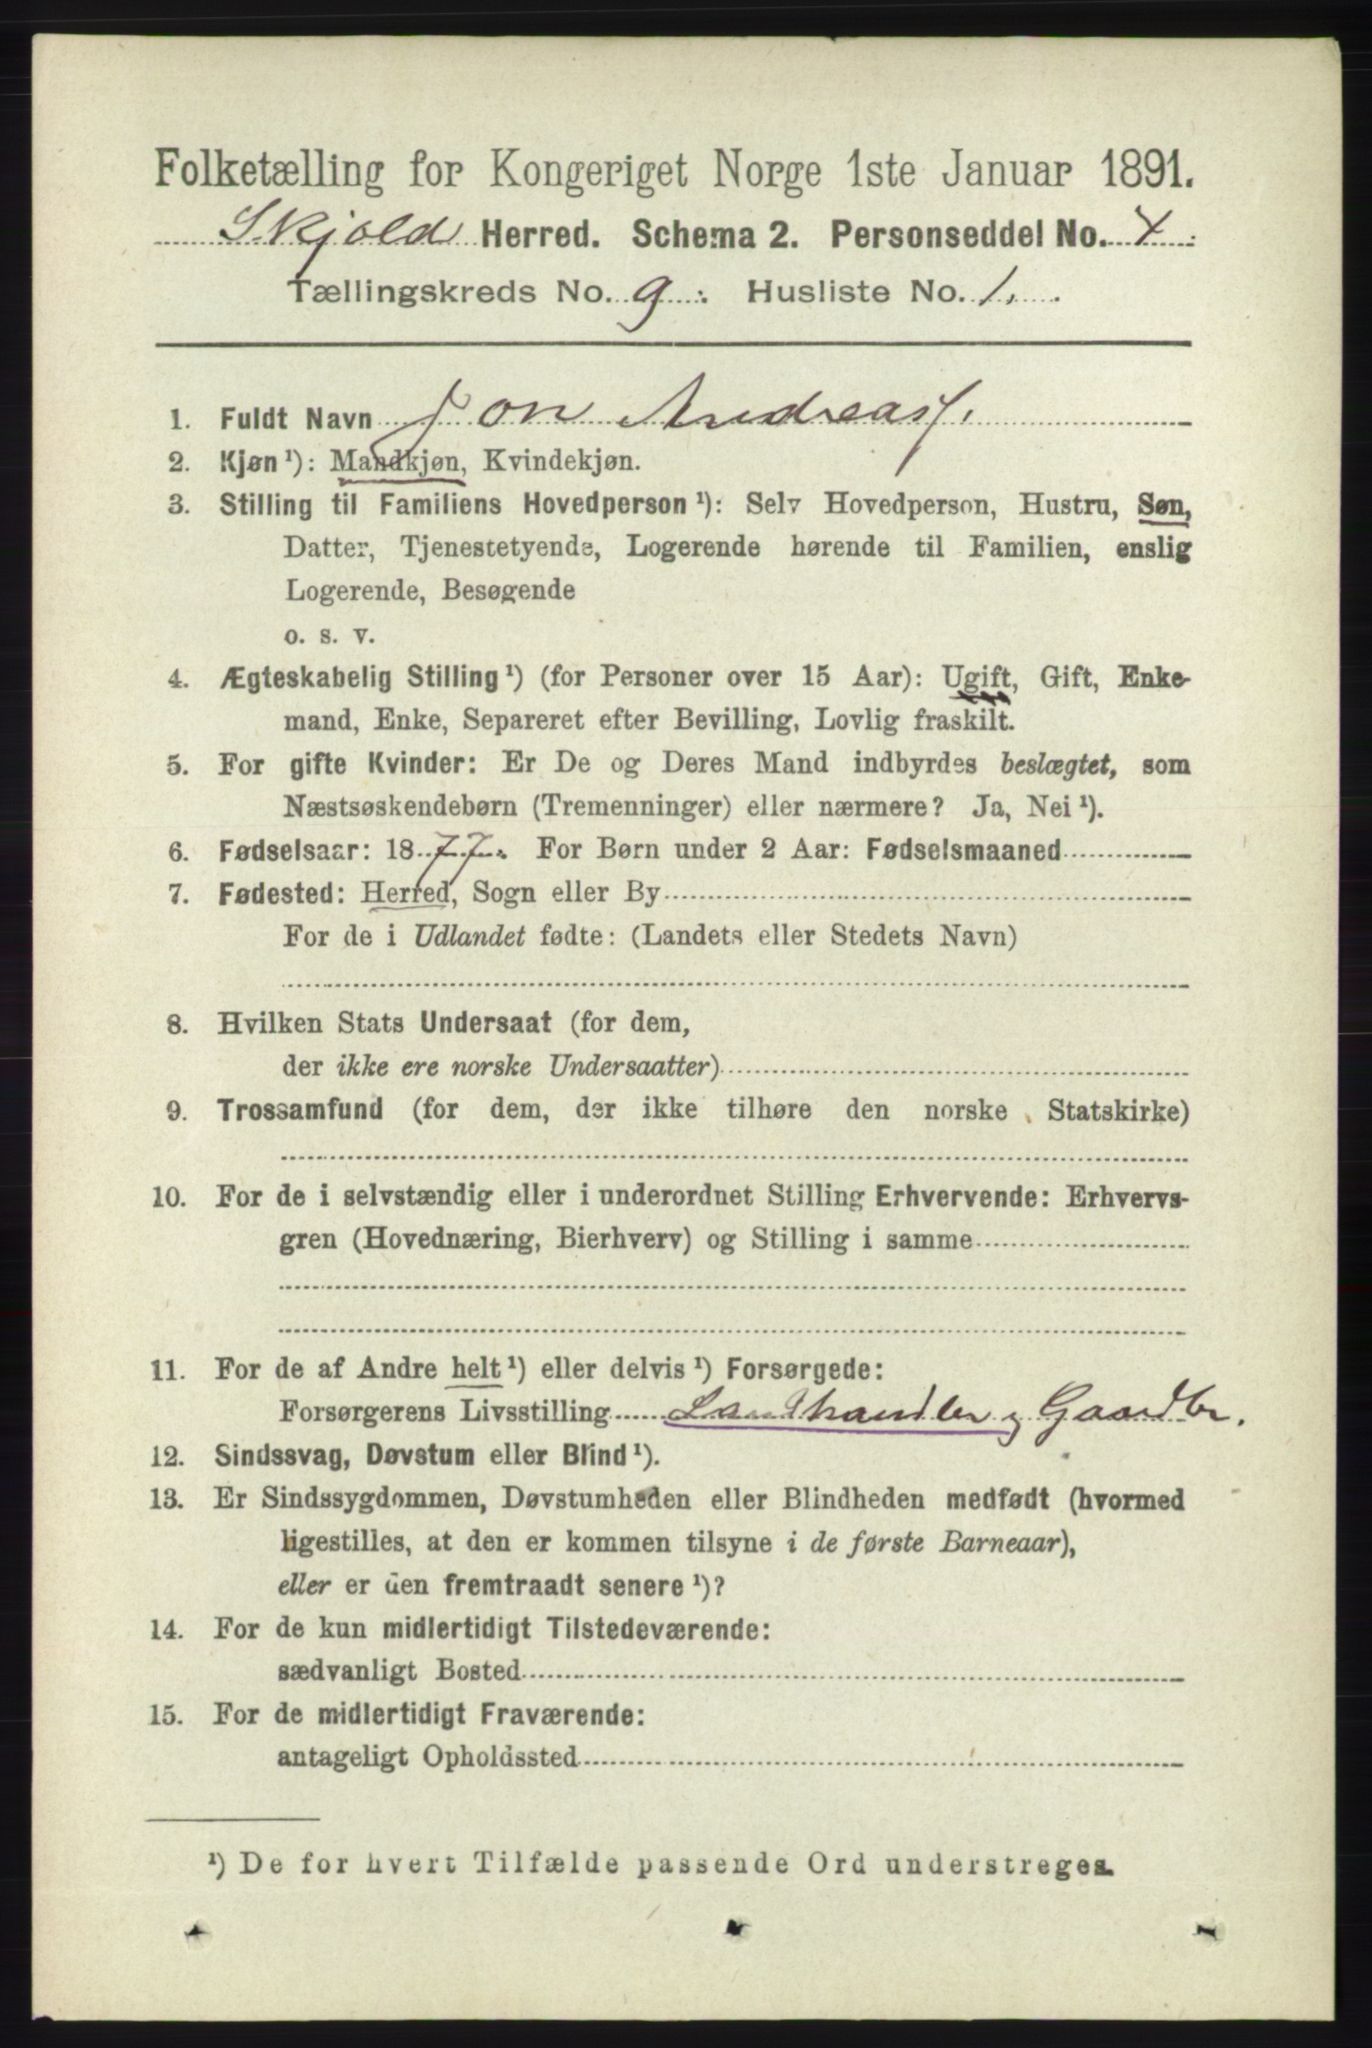 Folketælling for Kongeriget Norge 1ste Januar 1891.
Skjold Herred. Schema 2. Personseddel No. 4
Tællingskreds No. 9. Husliste No. 1.
1. Fuldt Navn Jon Andreas
2. Kjøn¹): Mandkjøn, Kvindekjøn.
3. Stilling til Familiens Hovedperson¹): Selv Hovedperson, Hustru, Søn,
Datter, Tjenestetyende, Logerende hørende til Familien, enslig
Logerende, Besøgende
o. s. v.
4. Ægteskabelig Stilling¹) (for Personer over 15 Aar): Ugift, Gift, Enke-
mand, Enke, Separeret efter Bevilling, Lovlig fraskilt.
5. For gifte Kvinder: Er De og Deres Mand indbyrdes beslægtet, som
Næstsøskendebørn (Tremenninger) eller nærmere? Ja, Nei¹).
6. Fødselsaar: 1877. For Børn under 2 Aar: Fødselsmaaned
7. Fødested: Herred, Sogn eller By
For de i Udlandet fødte: (Landets eller Stedets Navn)
8. Hvilken Stats Undersaat (for dem,
der ikke ere norske Undersaatter)
9. Trossamfund (for dem, der ikke tilhøre den norske Statskirke)
10. For de i selvstændig eller i underordnet Stilling Erhvervende: Erhvervs-
gren (Hovednæring, Bierhverv) og Stilling i samme
11. For de af Andre helt¹) eller delvis¹) Forsørgede:
Forsørgerens Livsstilling Landhandler og Gaardbr.
12. Sindssvag, Døvstum eller Blind¹).
13. Er Sindssygdommen, Døvstumheden eller Blindheden medfødt (hvormed
ligestilles, at den er kommen tilsyne i de første Barneaar),
eller er den fremtraadt senere¹)?
14. For de kun midlertidigt Tilstedeværende:
sædvanligt Bosted
15. For de midlertidigt Fraværende:
antageligt Opholdssted
¹) De for hvert Tilfælde passende Ord understreges.